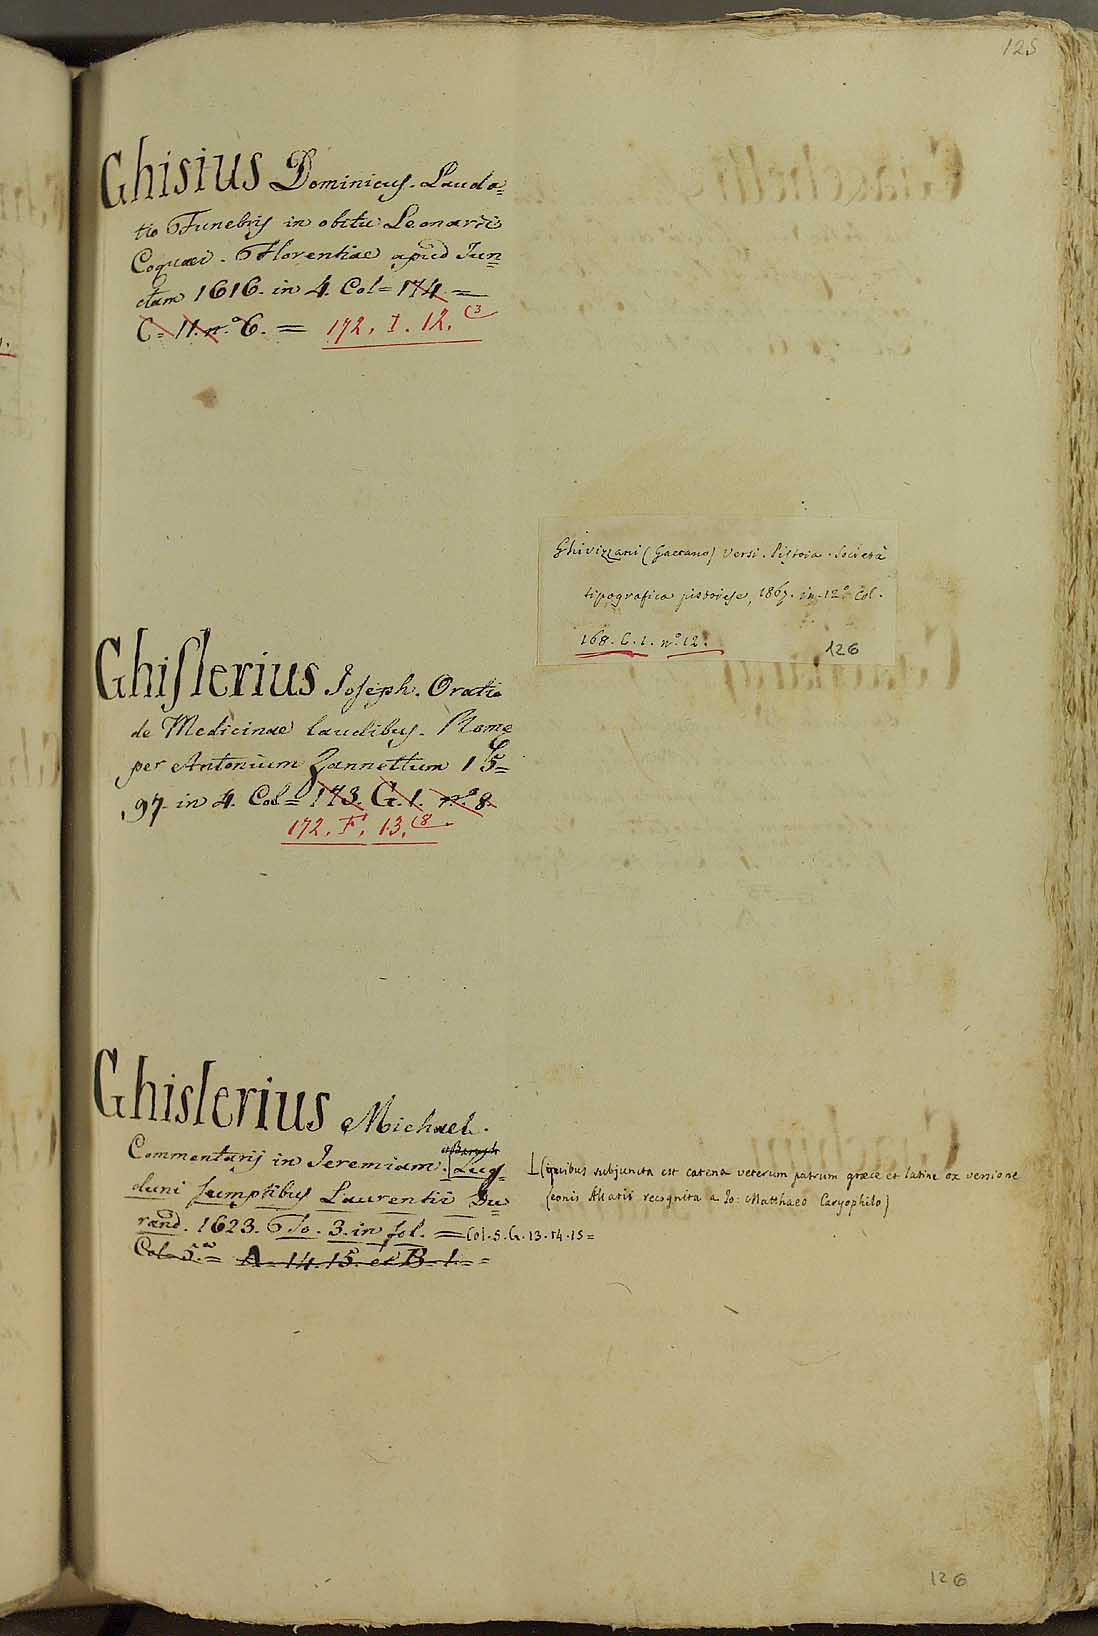 125
Ghisius Dominicus. Lauda=
tio Funebris in obitu Leonardi
Coquaei. Florentiae apud Jun=
ctam 1616. in 4. Col= 174. =
C= 11. n.º 6. = 172. I. 12. (3
Ghivizzani (Gaetano) Versi. Pistoia. Società
tipografica pistoiese, 1867. in-12º Col.
168. C. 1. nº 12.
126
Ghislerius Joseph. Oratio
de Medicinae laudibus. Rome
per Antonium Zannettum 15=
97. in 4. Col= 173. G. 1. n.º 8.
172. F. 13. (8.
Ghislerius Michael.
Commentarij in Jeremiam. et Baruch Lug=
duni sumptibus Laurentii Du
rand. 1623. To. 3. in fol. = Col. 5. G. 13. 14. 15=
Col. 5.ª = A. 14. 15. et B. 1. =
(quibus subjuncta est catena veterum patrum græce et latine ex versione
Leonis Allatii recognita a Io: Matthaeo Caryophilo)
126